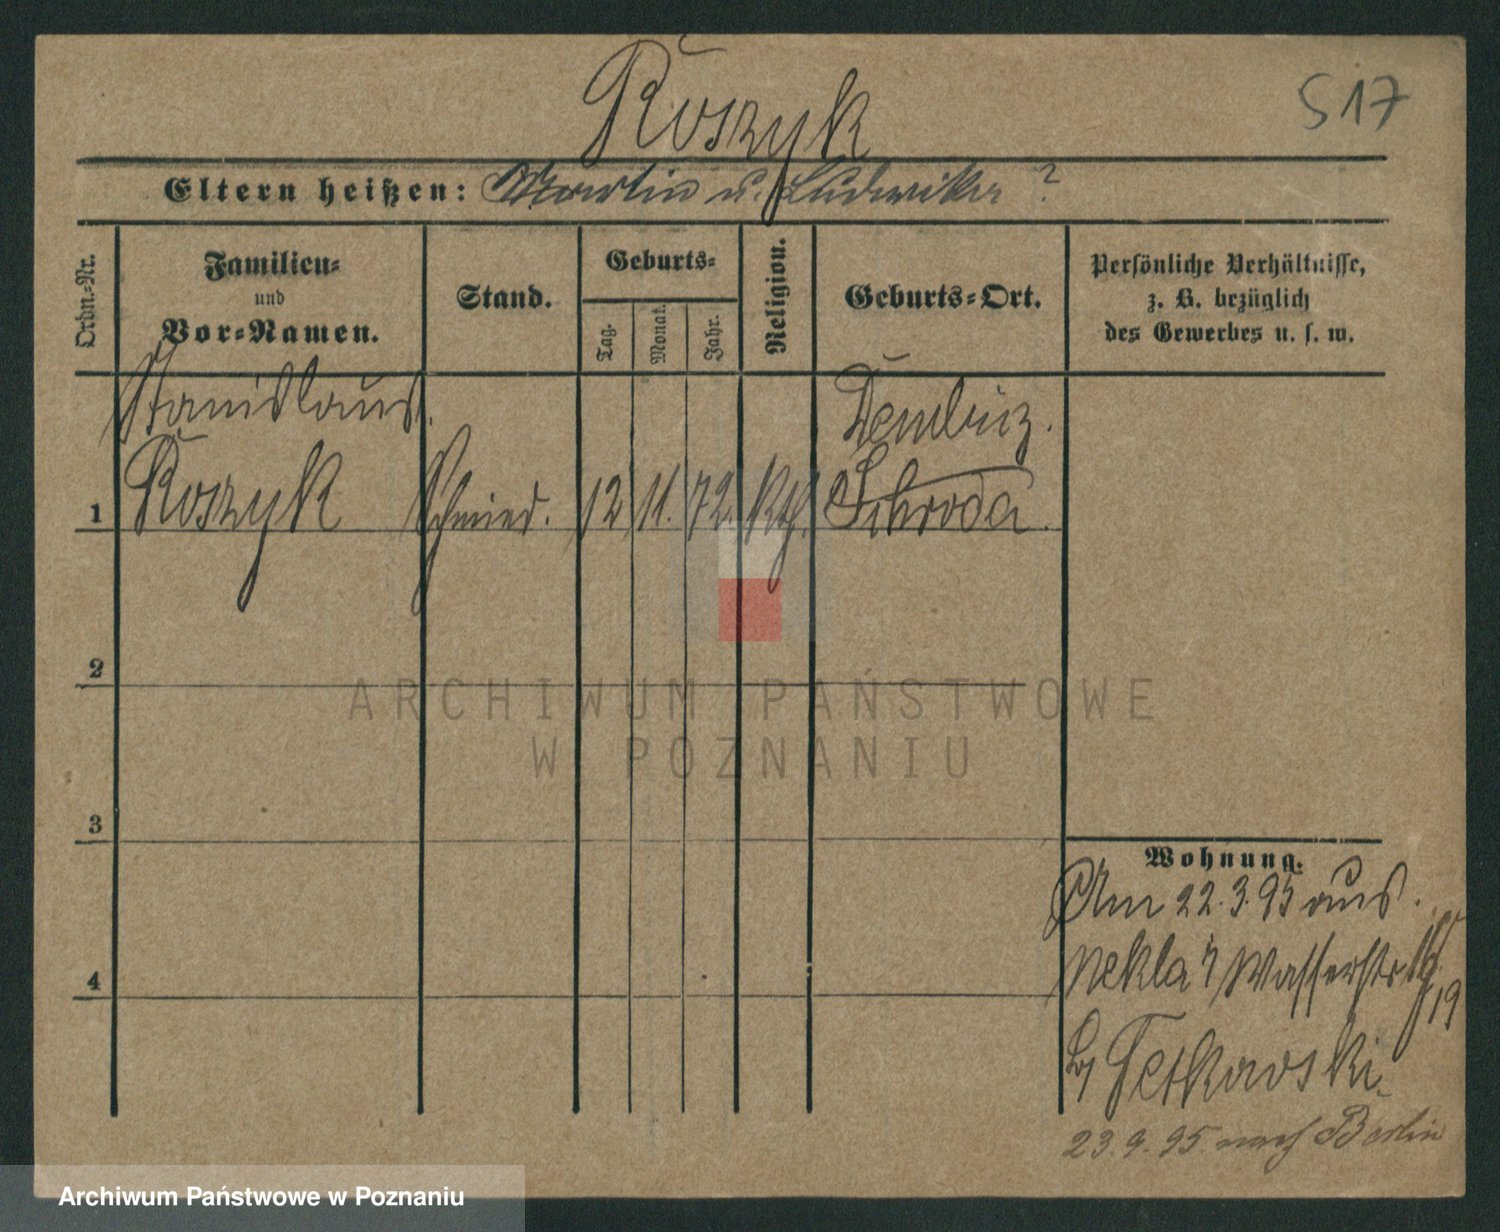 Roszyk
S 17
Eltern heißen: Martin u. Ludwika ?
Ordn.-Nr.
Familien-
und
Vor-Namen.
Stand.
Geburts-
Tag.
Monat.
Jahr.
Religion.
Geburts-Ort.
Persönliche Verhältnisse,
z. B. bezüglich
des Gewerbes u. s. w.
Stanislaus
Dembicz.
1 Roszyk Schmied. 12 11. 72. Kth. Schroda.
2
3
4
Wohnung.
Am 22.3.95 aus.
Nekla Wasserstr
19
Tetkowski
23.9.95 nach Berlin
ARCHIWUM PAŃSTWOWE
W POZNANIU
Archiwum Państwowe w Poznaniu